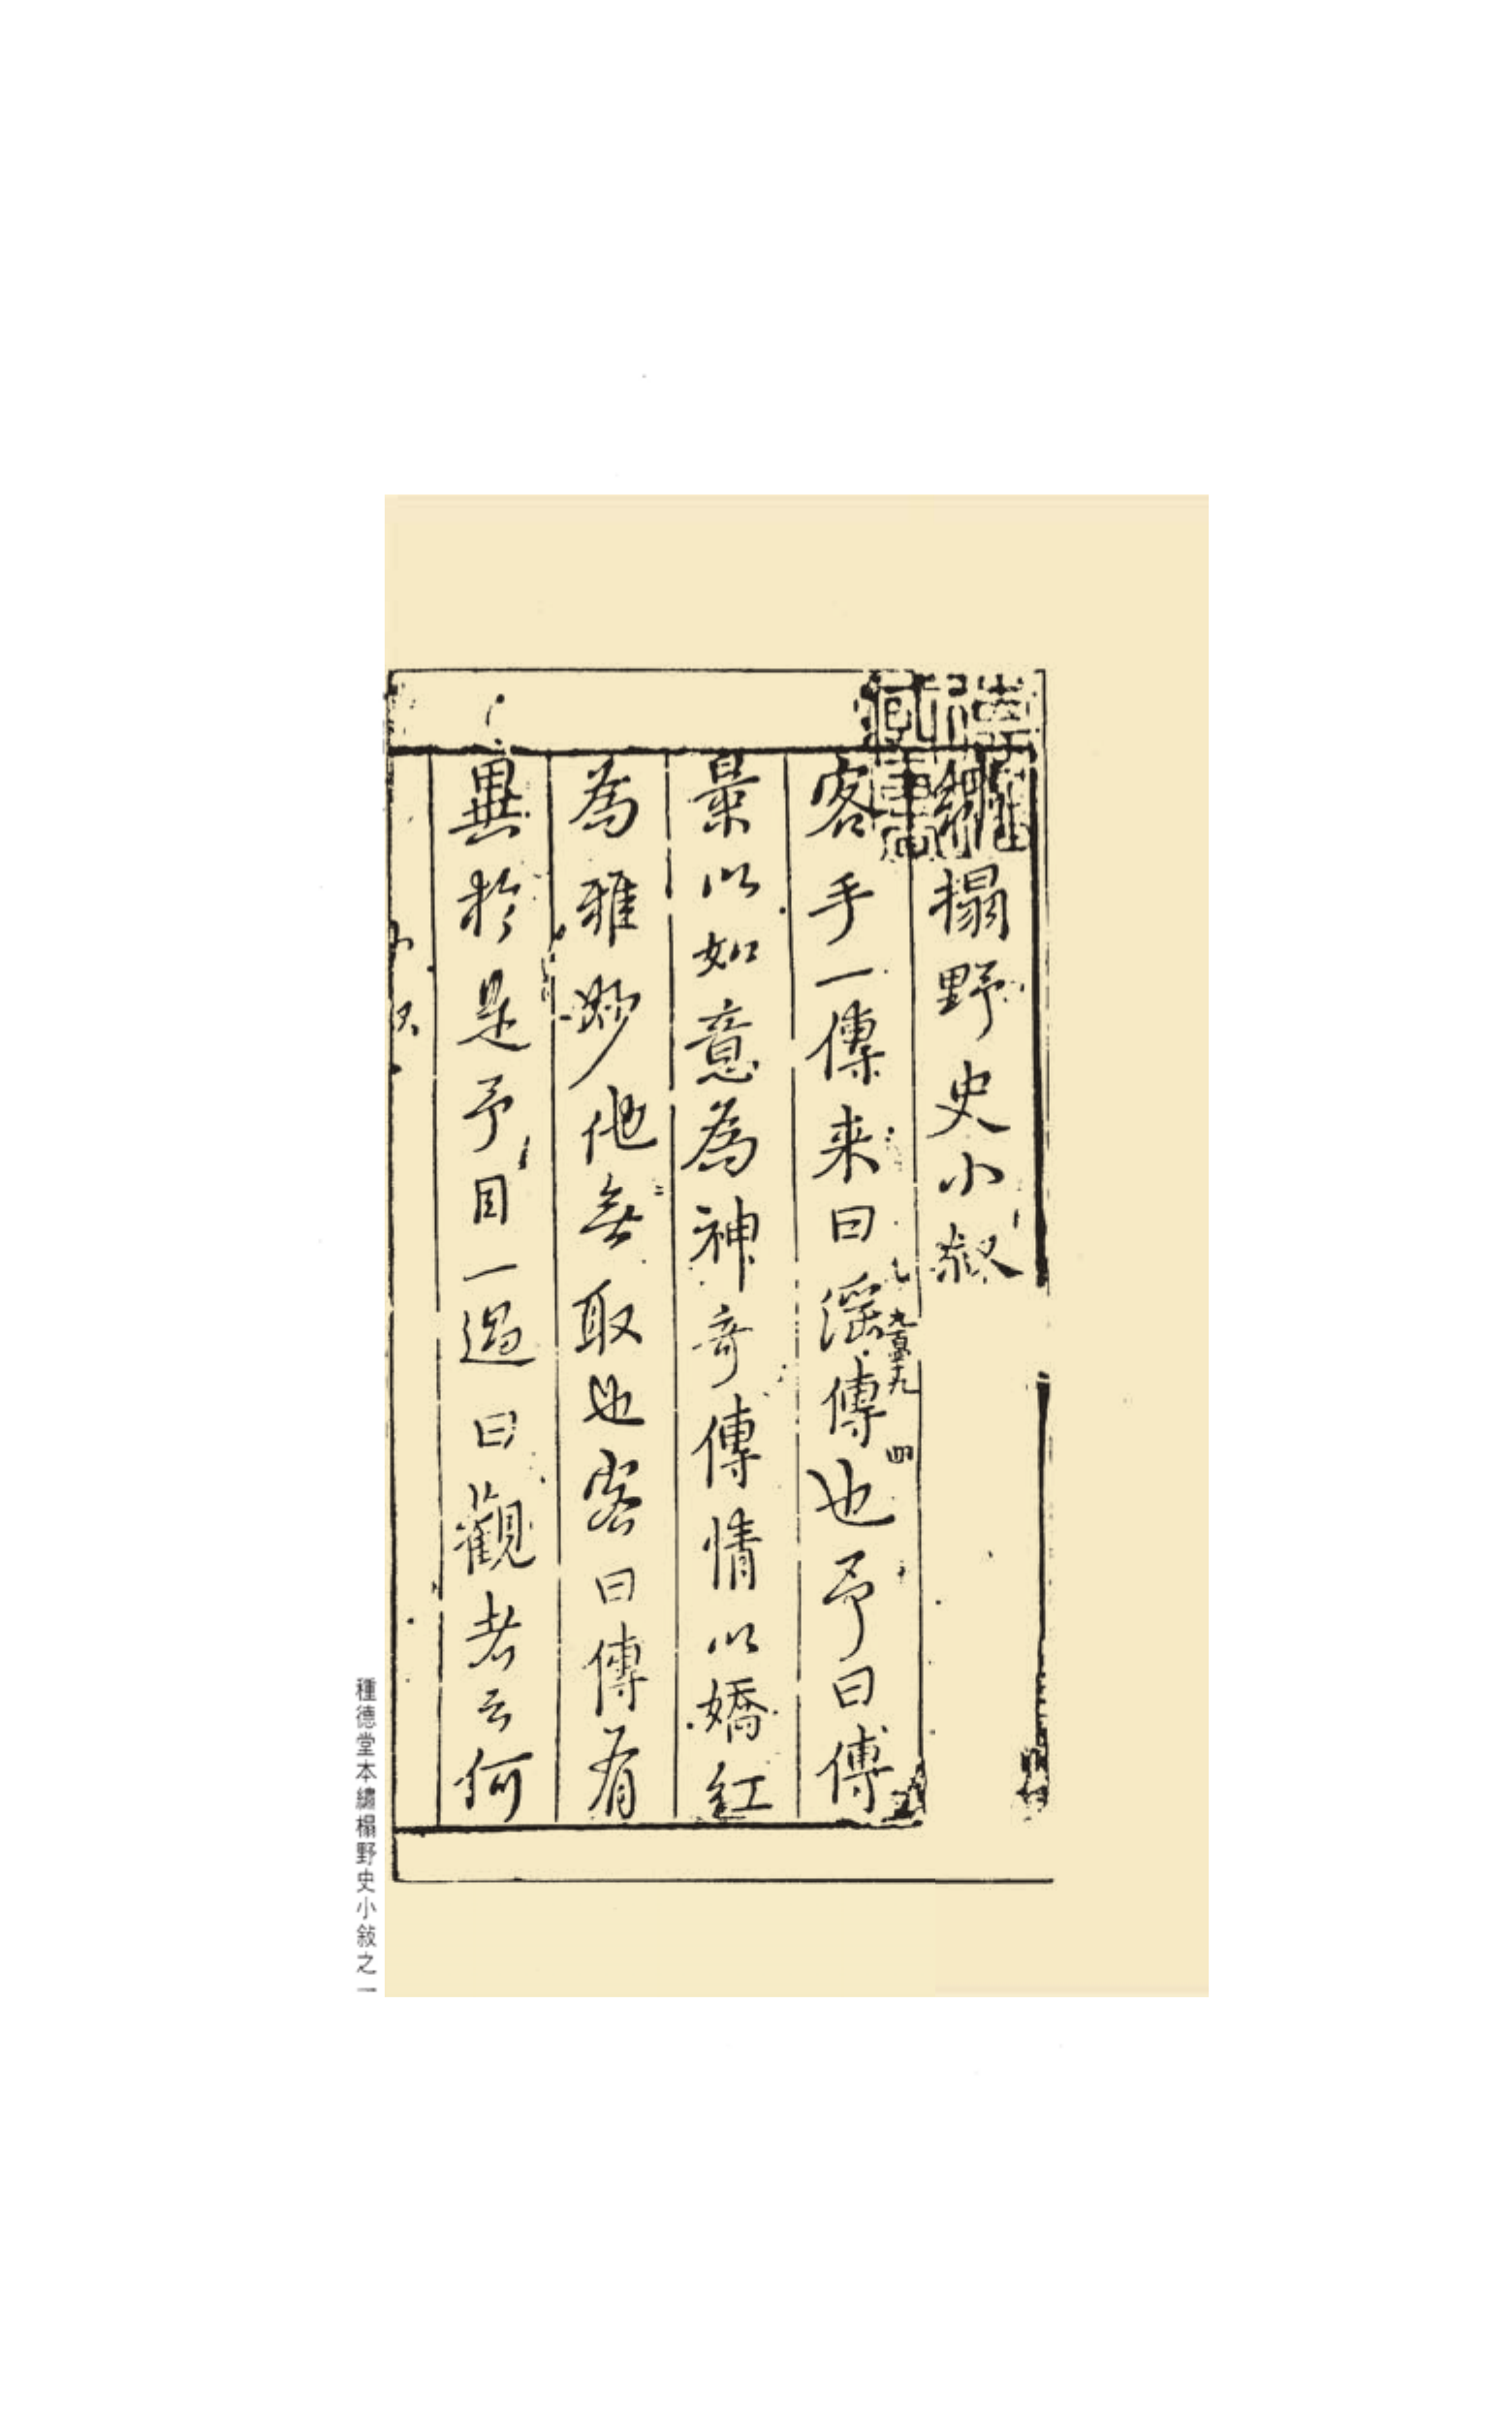 繡榻野史小敘
客手一傳来曰淫傳也予曰傳
景以如意為神奇傳情以嬌紅
為雅妙他無取也客曰傳有
異於是予目一過曰觀者云何
九百五十九
四
種德堂本繡榻野史小敘之一